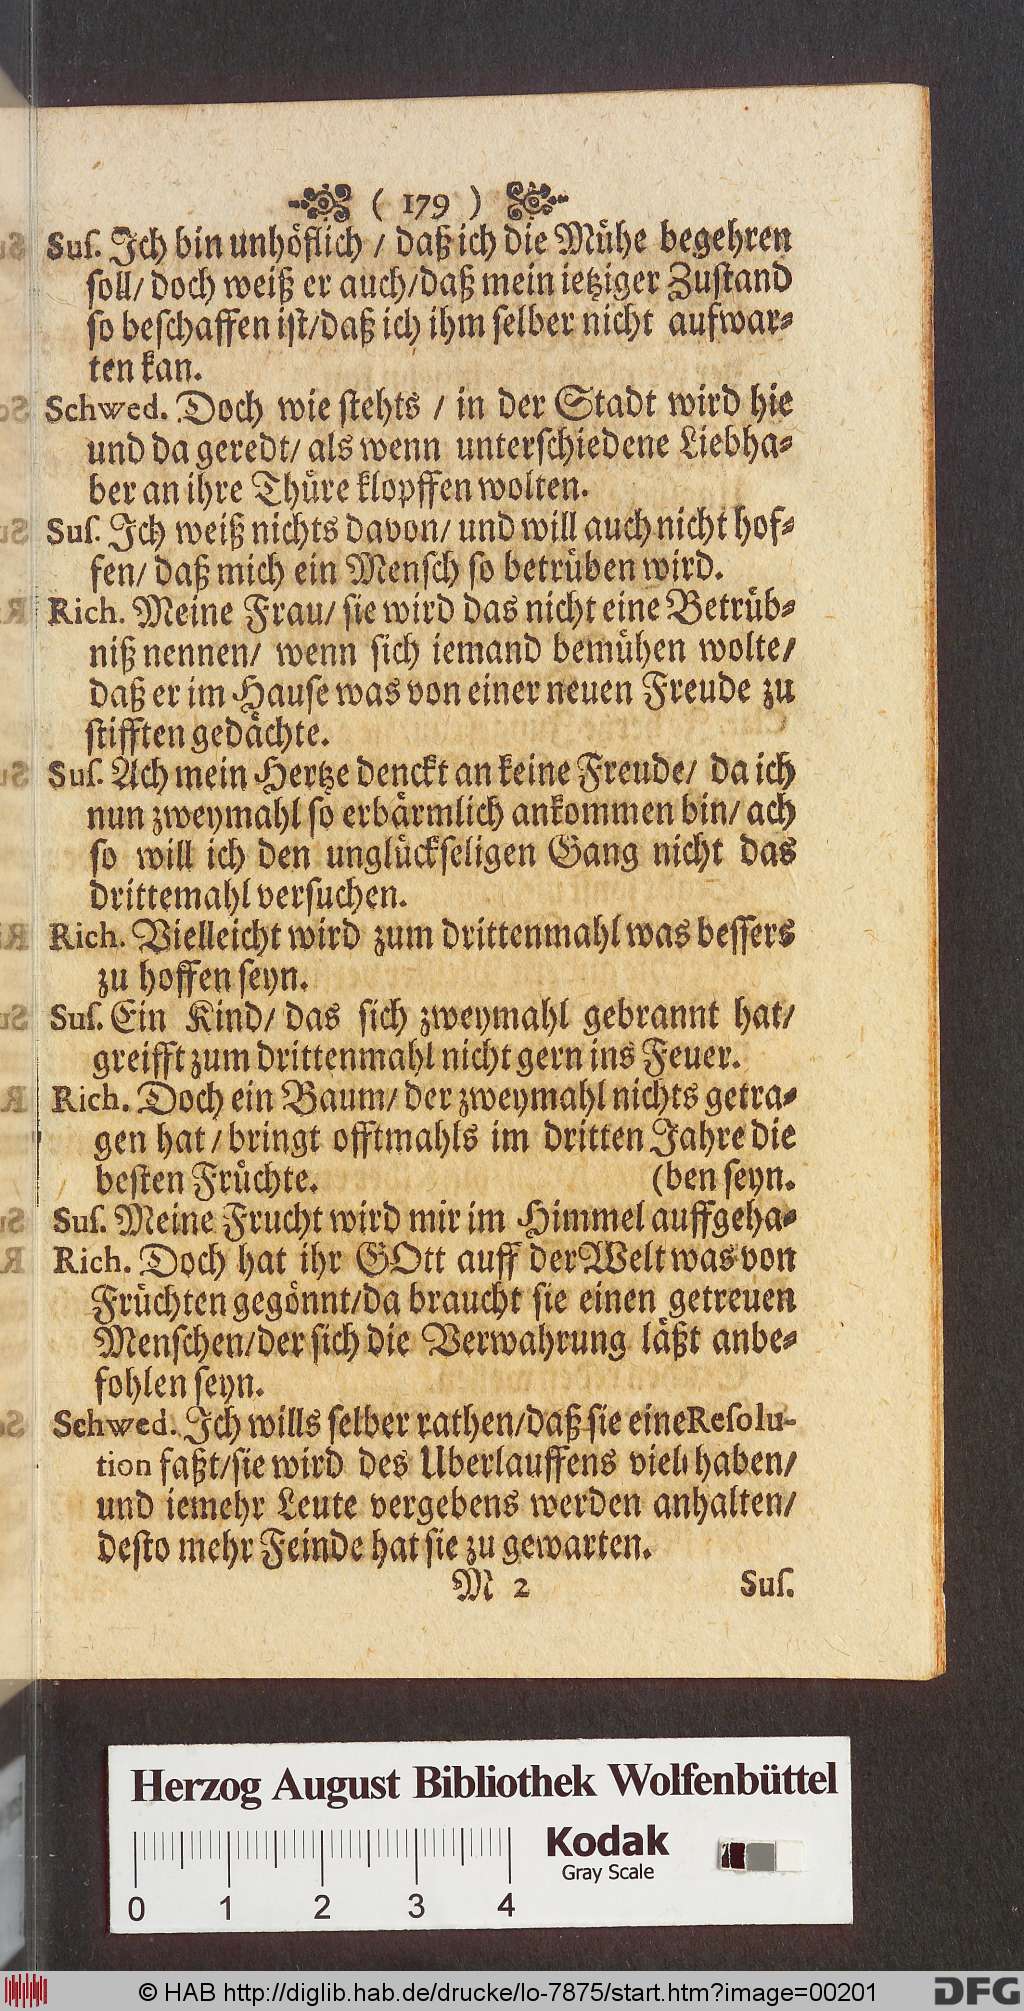 ( 179 )
Suſ. Ich bin unhöflich / daß ich die Mühe begehren
ſoll/ doch weiß er auch/daß mein ietziger Zuſtand
ſo beſchaffen iſt/daß ich ihm ſelber nicht aufwar⸗
ten kan.
Schwed. Doch wie ſtehts / in der Stadt wird hie
und da geredt/ als wenn unterſchiedene Liebha⸗
ber an ihre Thüre klopffen wolten.
Suſ. Ich weiß nichts davon/ und will auch nicht hof⸗
fen/ daß mich ein Menſch ſo betrüben wird.
Rich. Meine Frau/ ſie wird das nicht eine Betrüb⸗
niß nennen/ wenn ſich iemand bemühen wolte/
daß er im Hauſe was von einer neuen Freude zu
ſtifften gedächte.
Suſ. Ach mein Hertze denckt an keine Freude/ da ich
nun zweymahl ſo erbärmlich ankommen bin/ ach
ſo will ich den unglückſeligen Gang nicht das
drittemahl verſuchen.
Rich. Vielleicht wird zum drittenmahl was beſſers
zu hoffen ſeyn.
Suſ. Ein Kind/ das ſich zweymahl gebrannt hat/
greifft zum drittenmahl nicht gern ins Feuer.
Rich. Doch ein Baum/ der zweymahl nichts getra⸗
gen hat / bringt offtmahls im dritten Jahre die
beſten Früchte. (ben ſeyn.
Suſ. Meine Frucht wird mir im Himmel auffgeha⸗
Rich. Doch hat ihr GOtt auff der Welt was von
Früchten gegönnt/da braucht ſie einen getreuen
Menſchen/der ſich die Verwahrung läßt anbe⸗
fohlen ſeyn.
Schwed. Ich wills ſelber rathen/daß ſie eine Reſolu-
tion faßt/ſie wird des Uberlauffens viel haben/
und iemehr Leute vergebens werden anhalten/
deſto mehr Feinde hat ſie zu gewarten.
M 2 Suſ.
Herzog August Bibliothek Wolfenbüttel
Kodak
Gray Scale
0 1 2 3 4
© HAB http://diglib.hab.de/drucke/lo-7875/start.htm?image=00201
DFG